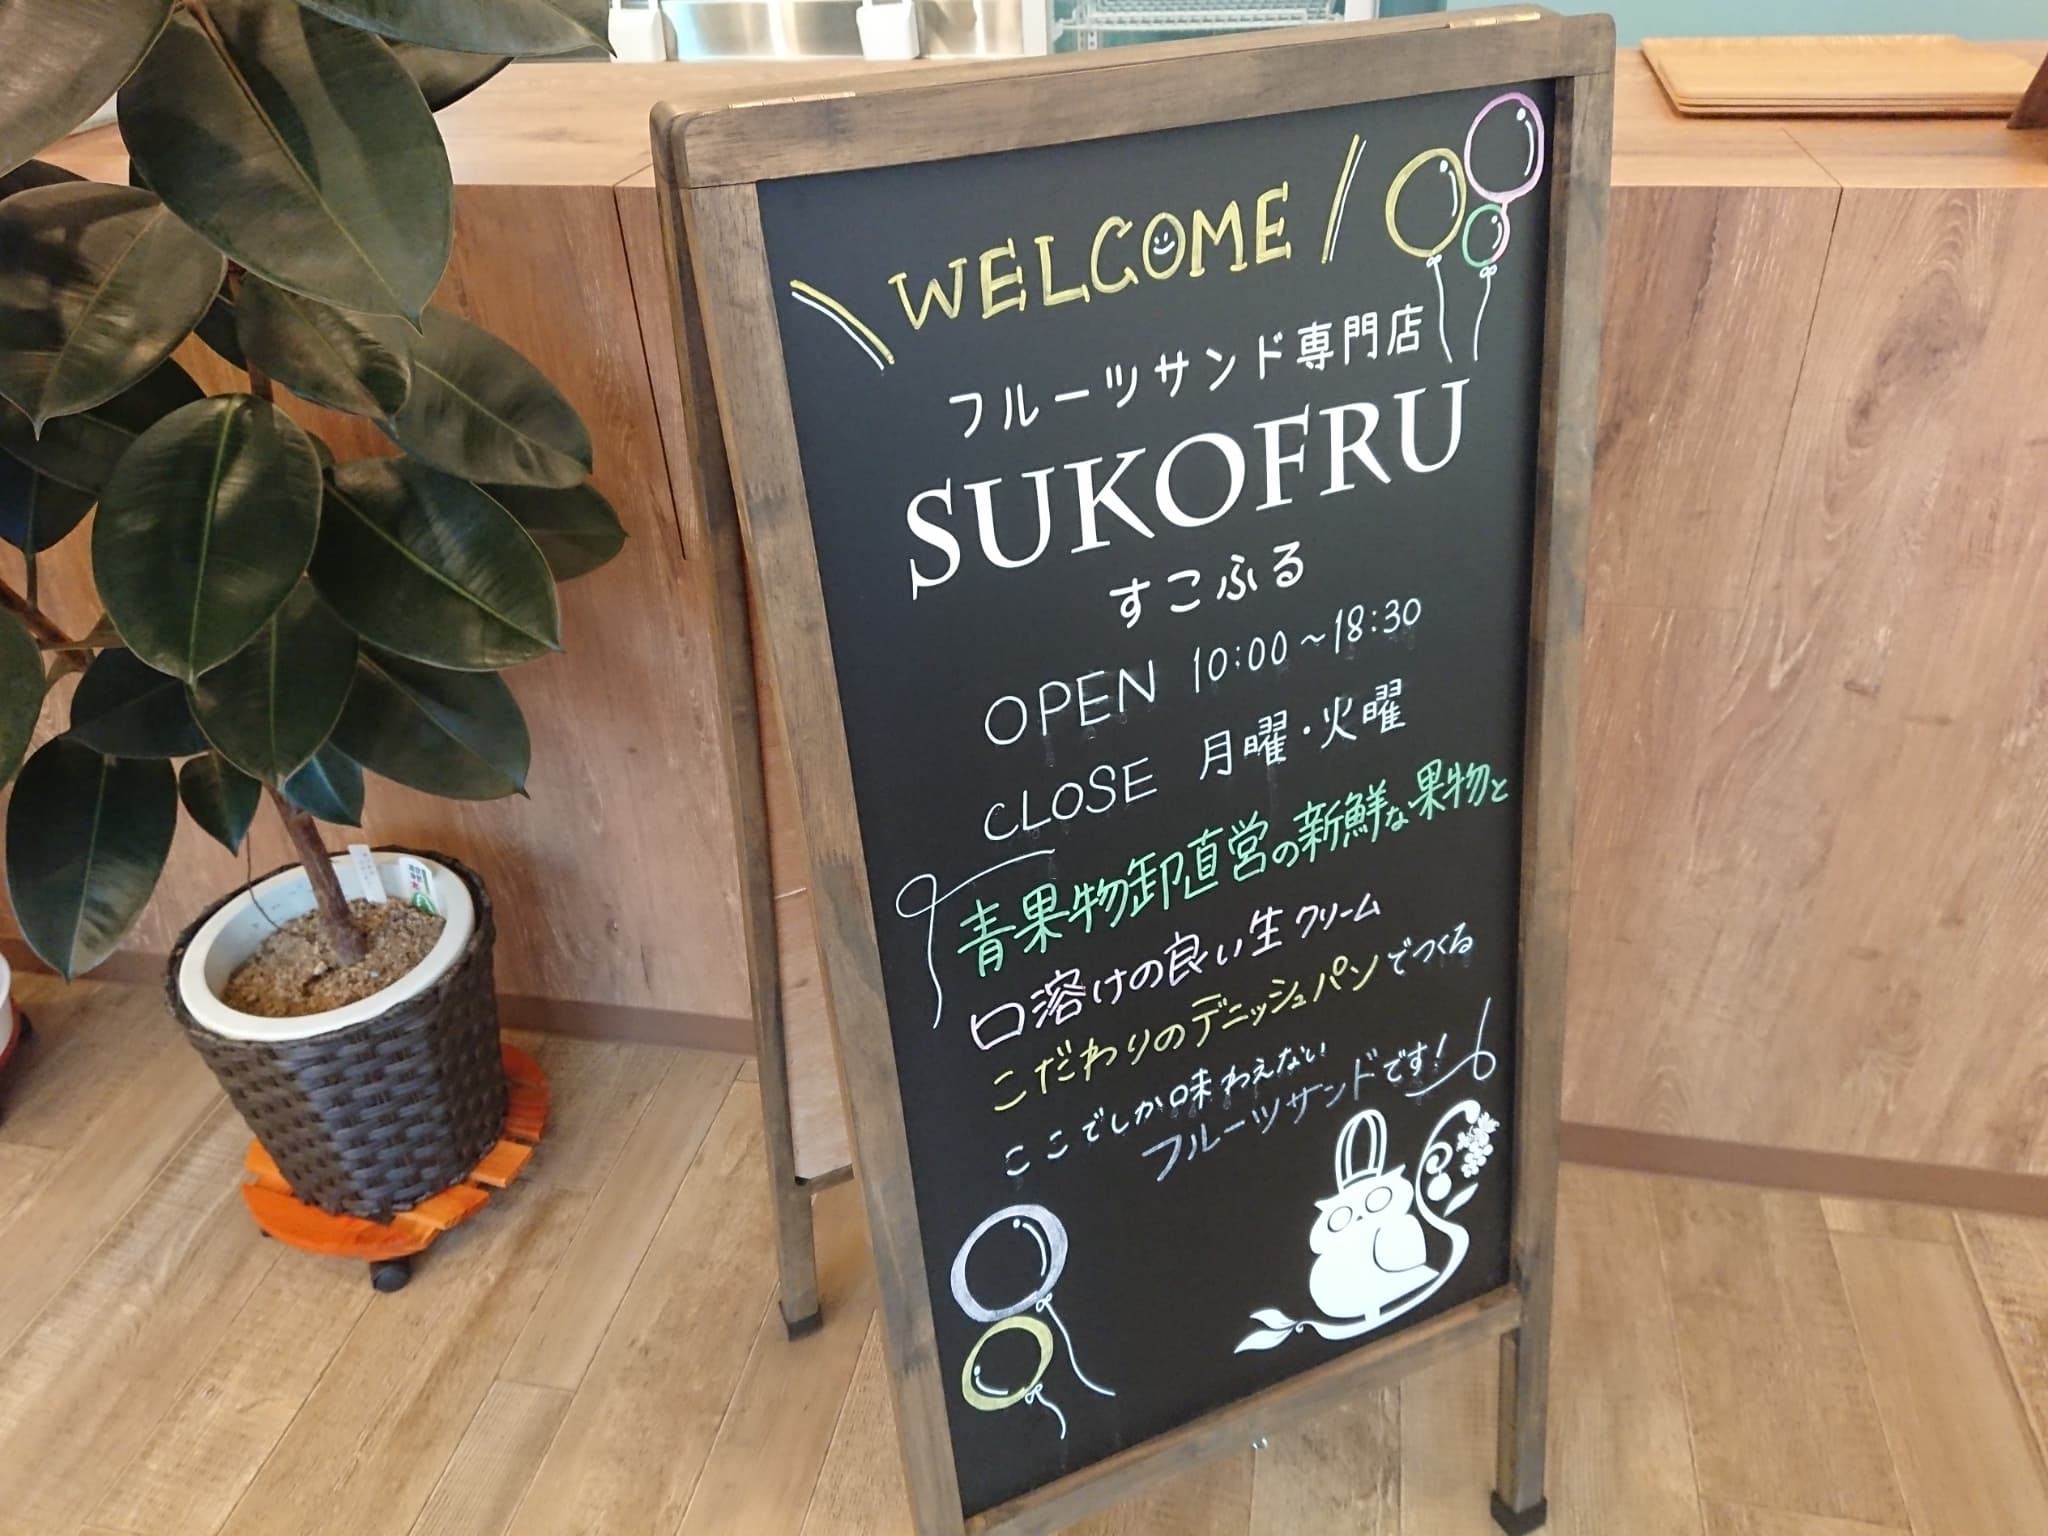 WELCOME
フルーツサンド専門店
SUKOFRU
すこふる
OPEN 10:00~18:30
CLOSE 月曜・火曜
青果物卸直営の新鮮な果物と
口溶けの良い生クリーム
こだわりのデニッシュパンでつくる
ここでしか味わえない
フルーツサンドです!